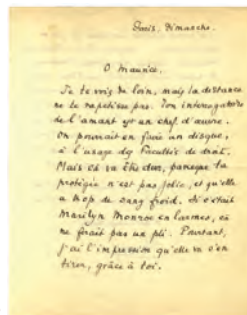 Paris, Dimanche.
O Maurice,
Je te vois de loin, mais la distance
ne te rapetisse pas. Ton interrogatoire
de l'amant est un chef d'œuvre.
On pourrait en faire un disque,
à l'usage des Facultés de droit.
Mais ça va être dur, parceque ta
protégée n'est pas jolie, et qu'elle
a trop de sang froid. Si c'était
Marilyn Monroe en larmes, ça
ne ferait pas un pli. Pourtant,
j'ai l'impression qu'elle va s'en
tirer, grâce à toi.